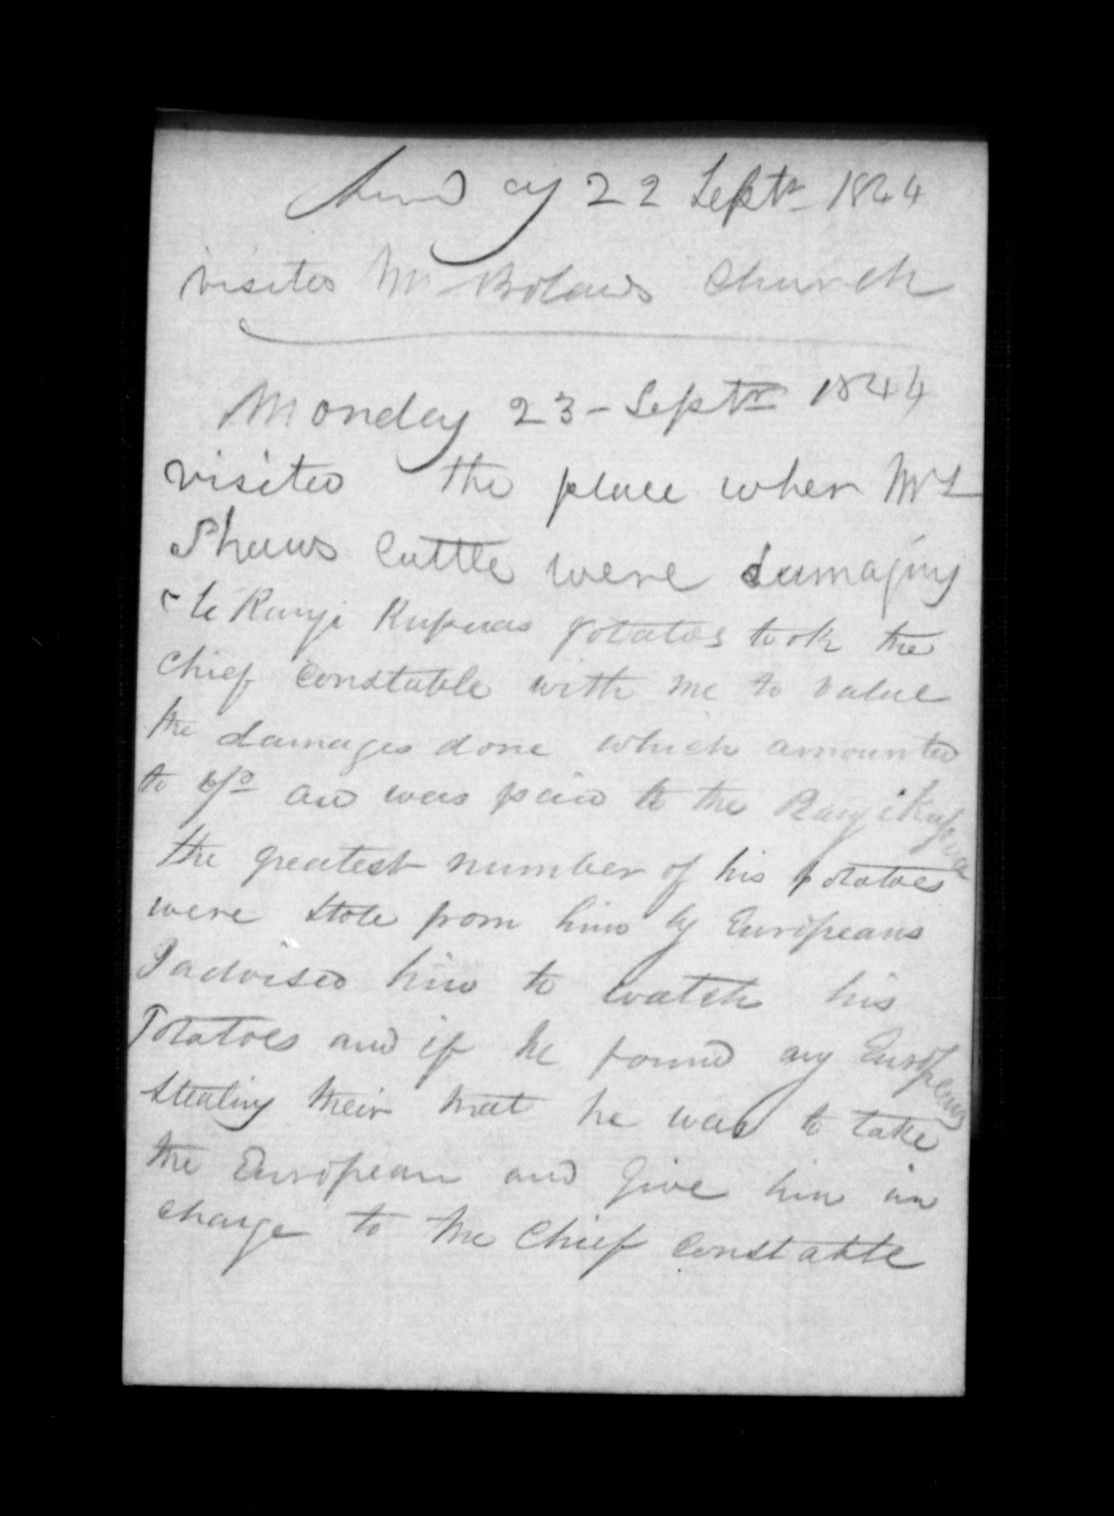 Sunday 22 Septr 1844
visited Mr Bolands Church
Monday 23 - Septr 1844
visited the place when Mr
Shaws Cattle were damaging
te Rangi Kupuas potatoes took the
Chief Constable with me to value
the damages done which amounted
to and was paid to the Rangi Kupua
the greatest number of his potatoes
were stole from him by Europeans
I advised him to watch his
Potatoes and if he found any Europeans
stealing their that he was to take
the European and Give him in
charge to the Chief Constable